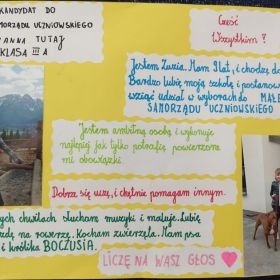 KANDYDAT DO
SAMORZĄDU UCZNIOWSKIEGO
TUTAJ
KLASA III A
Cześć
Wszystkim!
Jestem Zuzia. Mam 9 lat, i chodzę do
Bardzo lubię moją szkołę i postanow
wziąć udział w wyborach do MAŁE
SAMORZĄDU UCZNIOWSKIEGO
Jestem ambitną osobą i wykonuję
najlepiej jak tylko potrafię powierzone
mi obowiązki.
Dobrze się uczę, i chętnie pomagam innym.
ych chwilach słucham muzyki i maluję. Lubię
zdę na rowerze. Kocham zwierzęta. Mam psa
i królika BOCZUSIA.
LICZĘ NA WASZ GŁOS